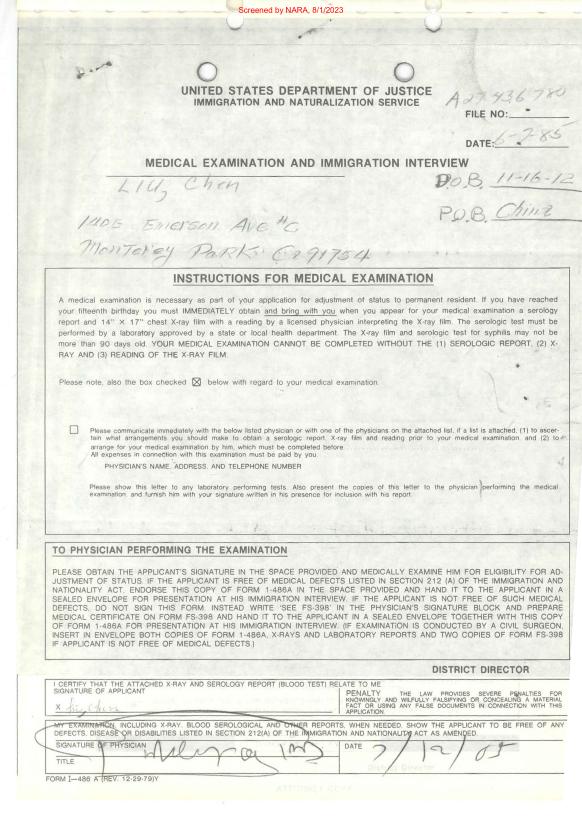 Screened by NARA, 8/1/2023
UNITED STATES DEPARTMENT OF JUSTICE
IMMIGRATION AND NATURALIZATION SERVICE
A27 436 780
FILE NO:
DATE: 6-7-85
MEDICAL EXAMINATION AND IMMIGRATION INTERVIEW
LIU, Chen
D.O.B. 11-16-12
P.O.B. China
Emerson Ave #C
Monterey Park Ca 91754
INSTRUCTIONS FOR MEDICAL EXAMINATION
A medical examination is necessary as part of your application for adjustment of status to permanent resident. If you have reached
your fifteenth birthday you must IMMEDIATELY obtain and bring with you when you appear for your medical examination a serology
report and 14" X 17" chest X-ray film with a reading by a licensed physician interpreting the X-ray film. The serologic test must be
performed by a laboratory approved by a state or local health department. The X-ray film and serologic test for syphilis may not be
more than 90 days old. YOUR MEDICAL EXAMINATION CANNOT BE COMPLETED WITHOUT THE (1) SEROLOGIC REPORT, (2) X-
RAY AND (3) READING OF THE X-RAY FILM.
Please note, also the box checked ☒ below with regard to your medical examination.
☐ Please communicate immediately with the below listed physician or with one of the physicians on the attached list, if a list is attached, (1) to ascer-
tain what arrangements you should make to obtain a serologic report, X-ray film and reading prior to your medical examination, and (2) to
arrange for your medical examination by him, which must be completed before
All expenses in connection with this examination must be paid by you.
PHYSICIAN'S NAME, ADDRESS, AND TELEPHONE NUMBER
Please show this letter to any laboratory performing tests. Also present the copies of this letter to the physician performing the medical
examination and furnish him with your signature written in his presence for inclusion with his report.
TO PHYSICIAN PERFORMING THE EXAMINATION
PLEASE OBTAIN THE APPLICANT'S SIGNATURE IN THE SPACE PROVIDED AND MEDICALLY EXAMINE HIM FOR ELIGIBILITY FOR AD-
JUSTMENT OF STATUS. IF THE APPLICANT IS FREE OF MEDICAL DEFECTS LISTED IN SECTION 212 (A) OF THE IMMIGRATION AND
NATIONALITY ACT, ENDORSE THIS COPY OF FORM 1-486A IN THE SPACE PROVIDED AND HAND IT TO THE APPLICANT IN A
SEALED ENVELOPE FOR PRESENTATION AT HIS IMMIGRATION INTERVIEW. IF THE APPLICANT IS NOT FREE OF SUCH MEDICAL
DEFECTS, DO NOT SIGN THIS FORM. INSTEAD WRITE 'SEE FS-398' IN THE PHYSICIAN'S SIGNATURE BLOCK AND PREPARE
MEDICAL CERTIFICATE ON FORM FS-398 AND HAND IT TO THE APPLICANT IN A SEALED ENVELOPE TOGETHER WITH THIS COPY
OF FORM 1-486A FOR PRESENTATION AT HIS IMMIGRATION INTERVIEW. (IF EXAMINATION IS CONDUCTED BY A CIVIL SURGEON,
INSERT IN ENVELOPE BOTH COPIES OF FORM 1-486A, X-RAYS AND LABORATORY REPORTS AND TWO COPIES OF FORM FS-398
IF APPLICANT IS NOT FREE OF MEDICAL DEFECTS.)
DISTRICT DIRECTOR
I CERTIFY THAT THE ATTACHED X-RAY AND SEROLOGY REPORT (BLOOD TEST) RELATE TO ME
SIGNATURE OF APPLICANT
X
PENALTY THE LAW PROVIDES SEVERE PENALTIES FOR
KNOWINGLY AND WILFULLY FALSIFYING OR CONCEALING A MATERIAL
FACT OR USING ANY FALSE DOCUMENTS IN CONNECTION WITH THIS
APPLICATION.
MY EXAMINATION, INCLUDING X-RAY, BLOOD SEROLOGICAL AND OTHER REPORTS, WHEN NEEDED, SHOW THE APPLICANT TO BE FREE OF ANY
DEFECTS, DISEASE OR DISABILITIES LISTED IN SECTION 212(A) OF THE IMMIGRATION AND NATIONALITY ACT AS AMENDED.
SIGNATURE OF PHYSICIAN
DATE 7/12/85
TITLE
District Director
FORM I-486 A (REV. 12-29-79)Y
ATTORNEY COPY